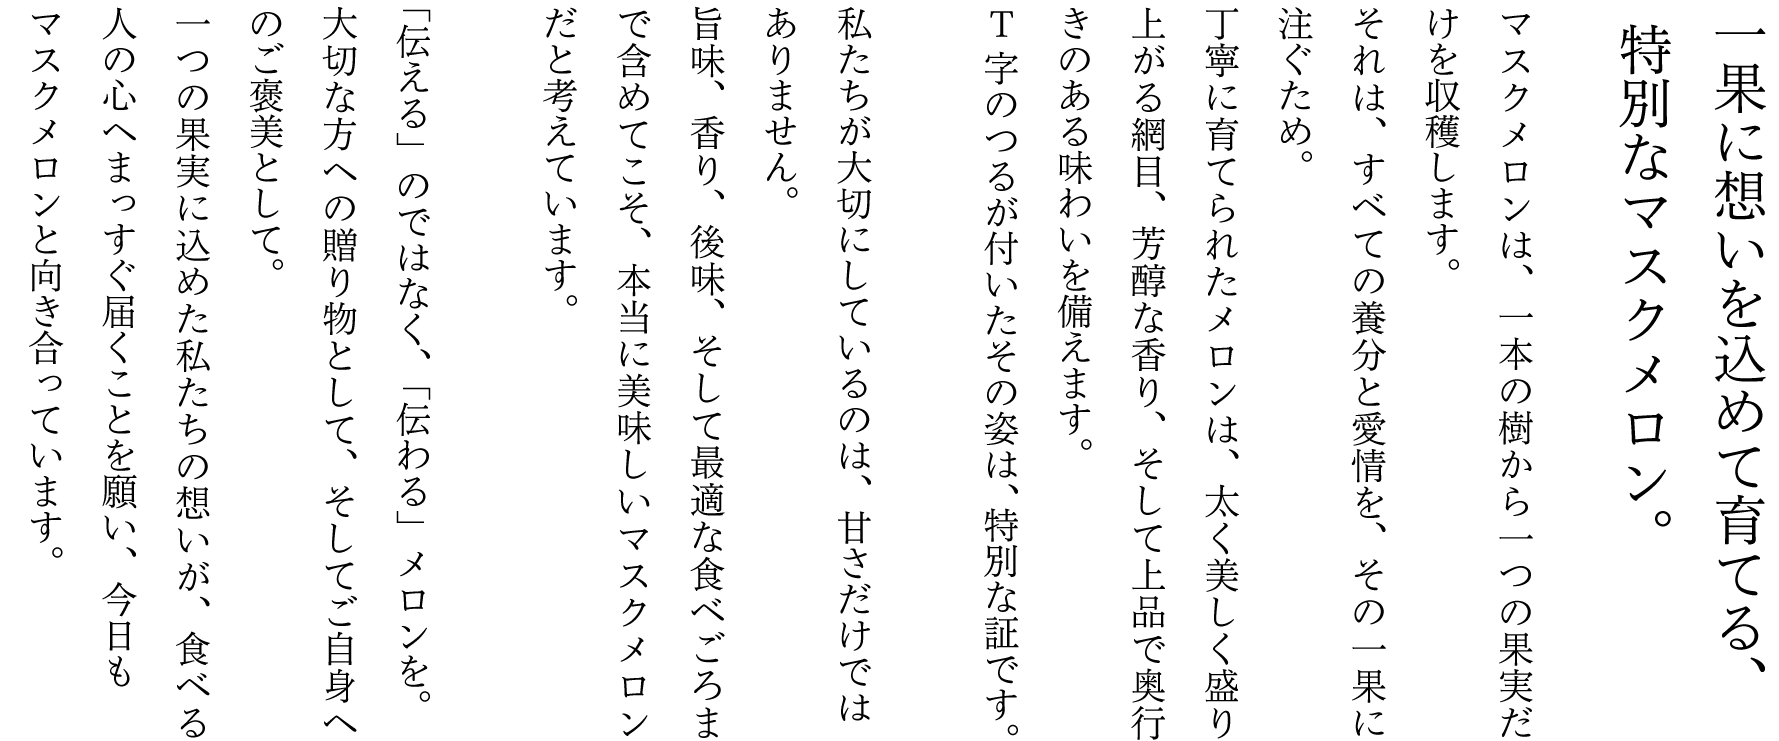 一果に想いを込めて育てる、
特別なマスクメロン。
マスクメロンは、一本の樹から一つの果実だ
けを収穫します。
それは、すべての養分と愛情を、その一果に
注ぐため。
丁寧に育てられたメロンは、太く美しく盛り
上がる網目、芳醇な香り、そして上品で奥行
きのある味わいを備えます。
T字のつるが付いたその姿は、特別な証です。
私たちが大切にしているのは、甘さだけでは
ありません。
旨味、香り、後味、そして最適な食べごろま
で含めてこそ、本当に美味しいマスクメロン
だと考えています。
「伝える」のではなく、「伝わる」メロンを。
大切な方への贈り物として、そしてご自身へ
のご褒美として。
一つの果実に込めた私たちの想いが、食べる
人の心へまっすぐ届くことを願い、今日も
マスクメロンと向き合っています。